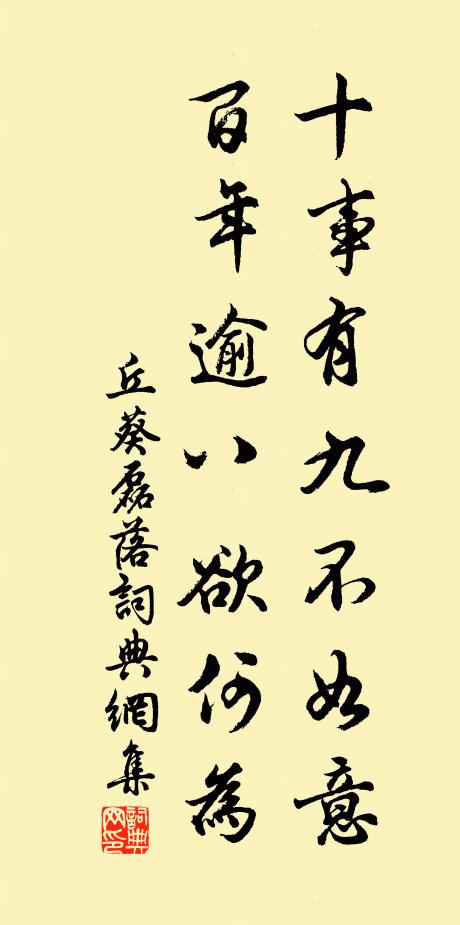 十事有九不如意
百年逾八欲何為
丘葵磊落詞典網集
詞典網印